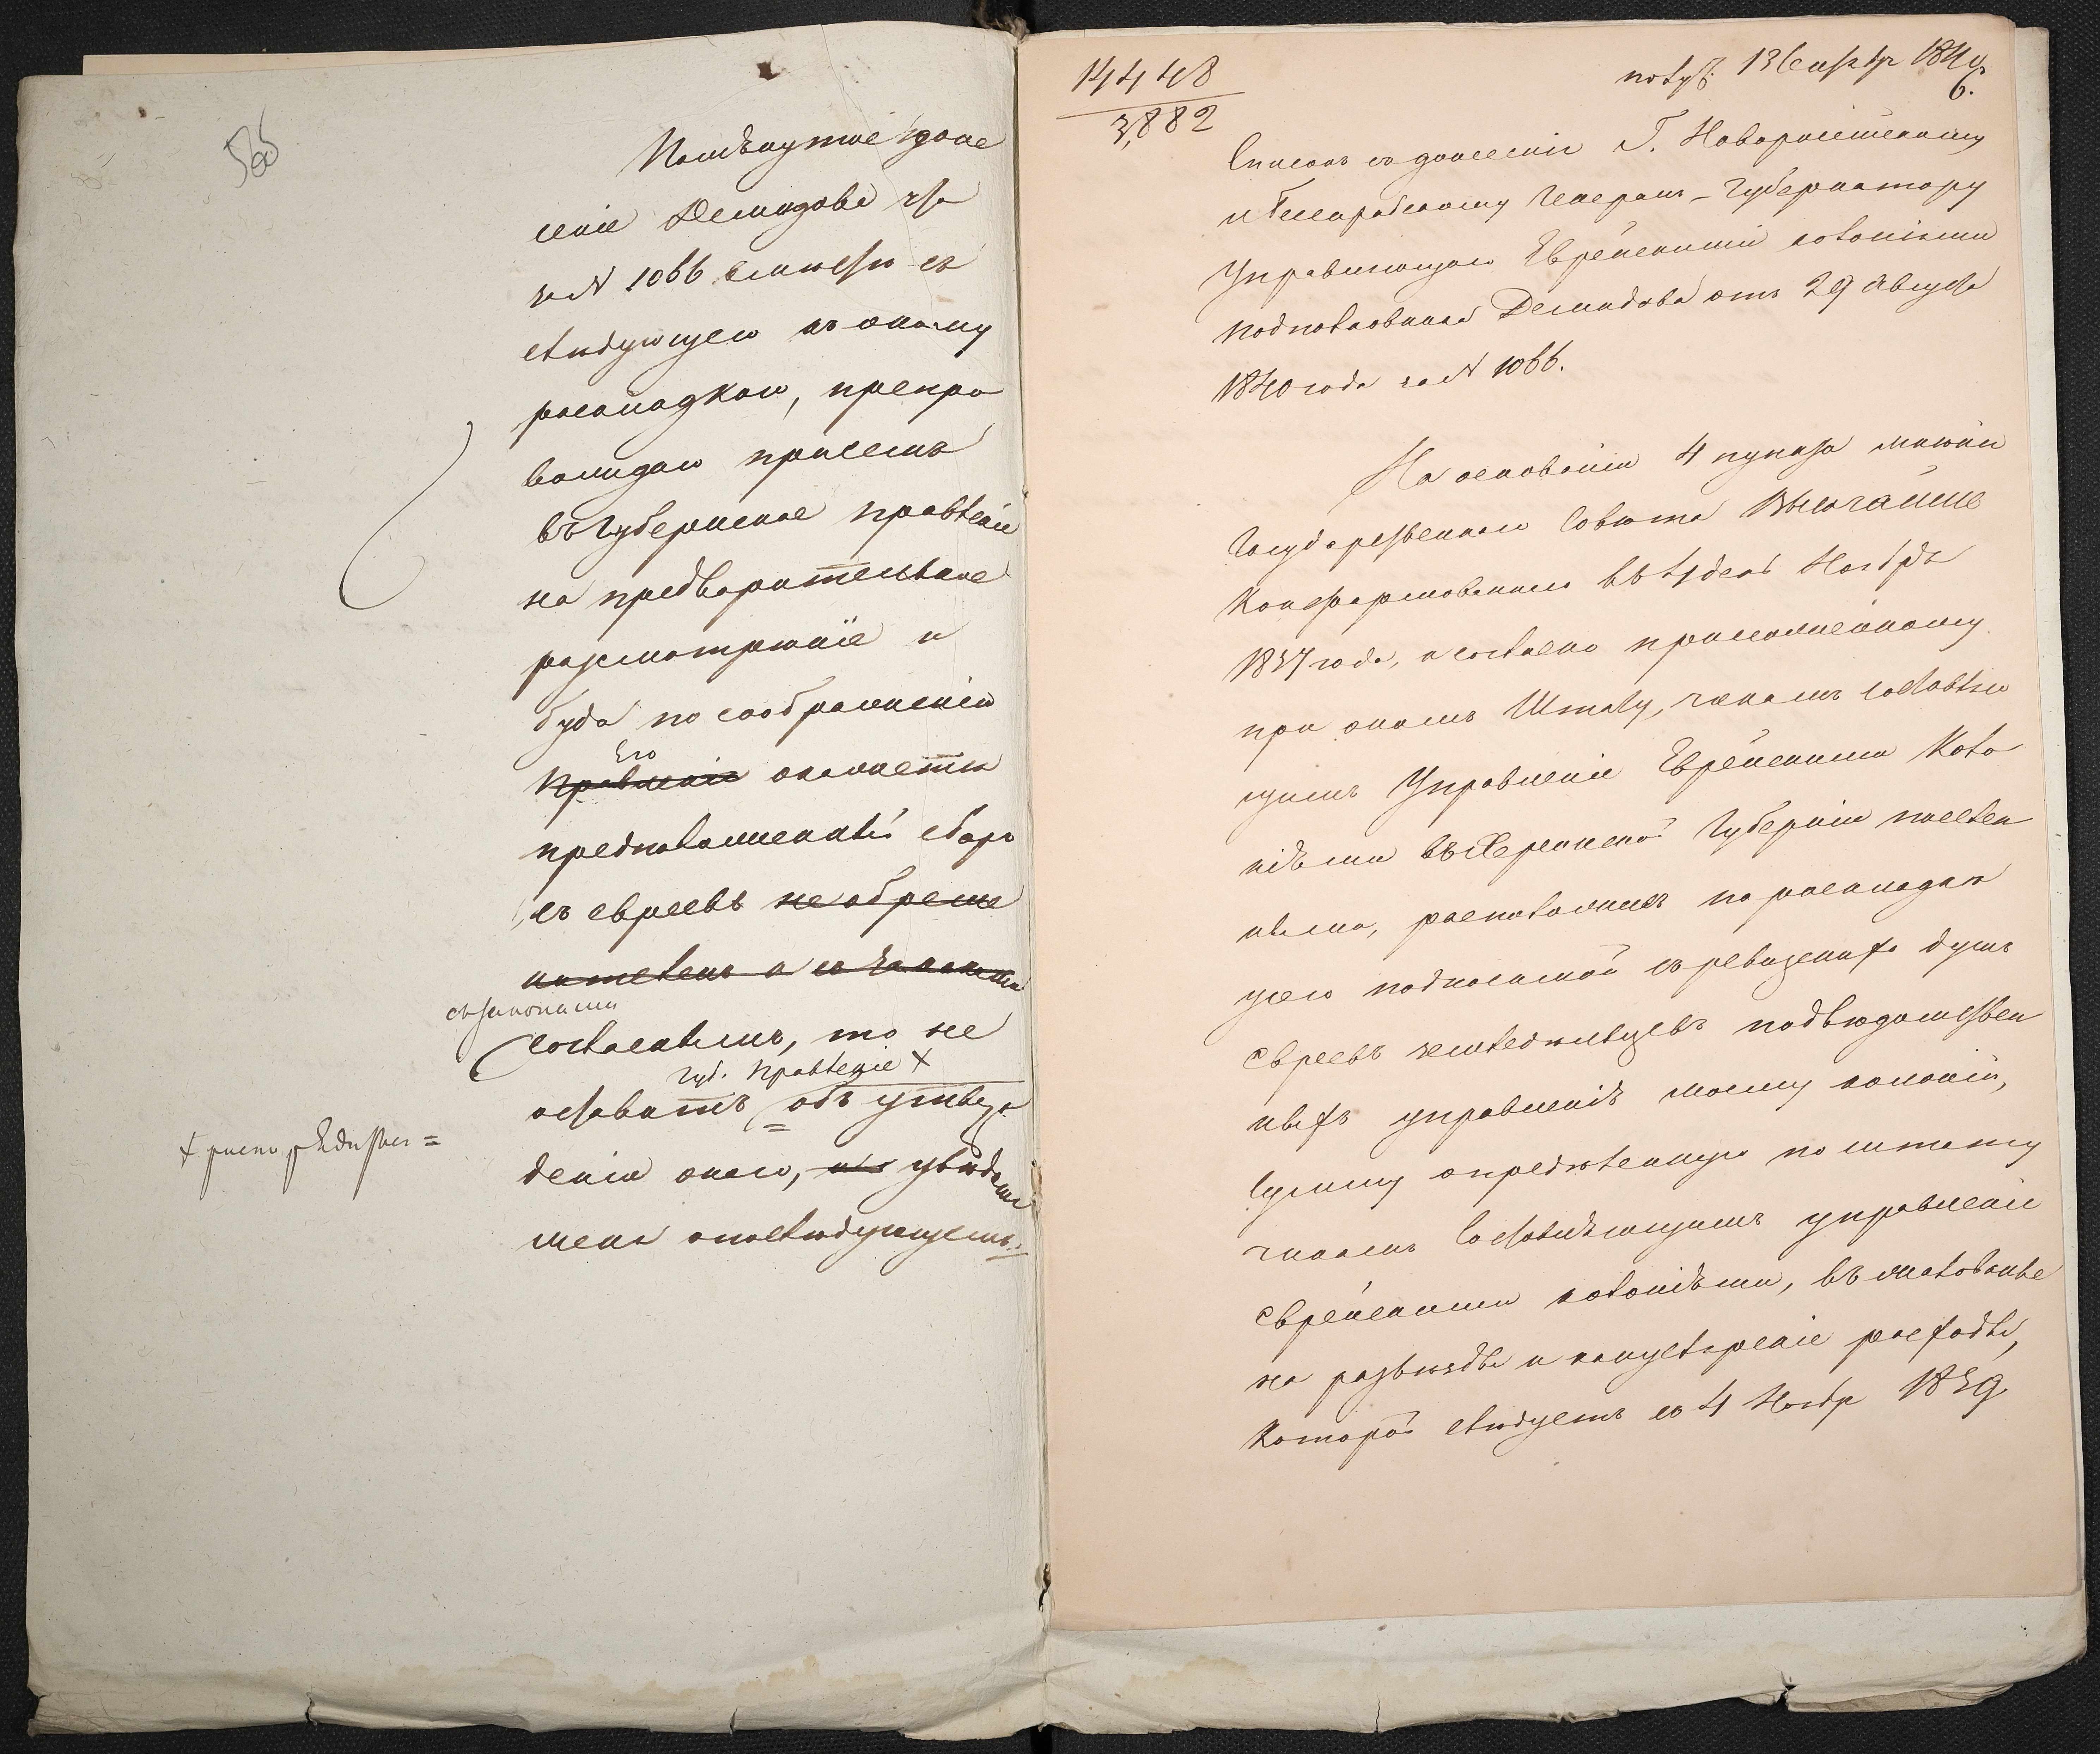 Помянутое доне
сеніе Демидова
за № 1066 вмѣстѣ съ
слѣдующею къ оному
раскладкою, препро
вождаю при семъ
въ Губернское правленіе
на предварительное
разсмотрѣніе и
буде по соображенію
его
Правленія окажется
предполагаемый сборъ
съ евреевъ не обреме
нителенъ и съ законами
съ законами
согласнымъ, то не
Губ. Правленіе +
оставитъ объ утверж
+ распорядиться =
деніи онаго, и увѣдомить
меня о послѣдующемъ.
14448
3,882
получ. 13 Сентябр 1840
6.
Списокъ съ донесенія Г. Новороссійскому
и Бессарабскому Генералъ-Губернатору
Управляющаго Еврейскими колоніями
подполковника Демидова отъ 29 Августа
1840 года за № 1066.
На основаніи 4 пункта мнѣнія
Государственнаго Совѣта Высочайше
Конфирмованнаго въ 4 день Ноября
1839 года, и согласно приложенному
при ономъ Штату, чинамъ составляю
щимъ Управленіе Еврейскими Коло
ніями въ Херсонской Губерніи поселен
ными, расположивъ по раскладкѣ
у сего подносимой съ ревизскихъ душъ
евреевъ земледѣльцевъ подвѣдомствен
ныхъ управленію моему колоній,
сумму опредѣленную по штату
чинамъ составляющимъ управленіе
еврейскими колоніями, въ жалованье
на разъѣзды и канцелярскіе расходы,
которой слѣдуетъ съ 4 Ноябр 1839